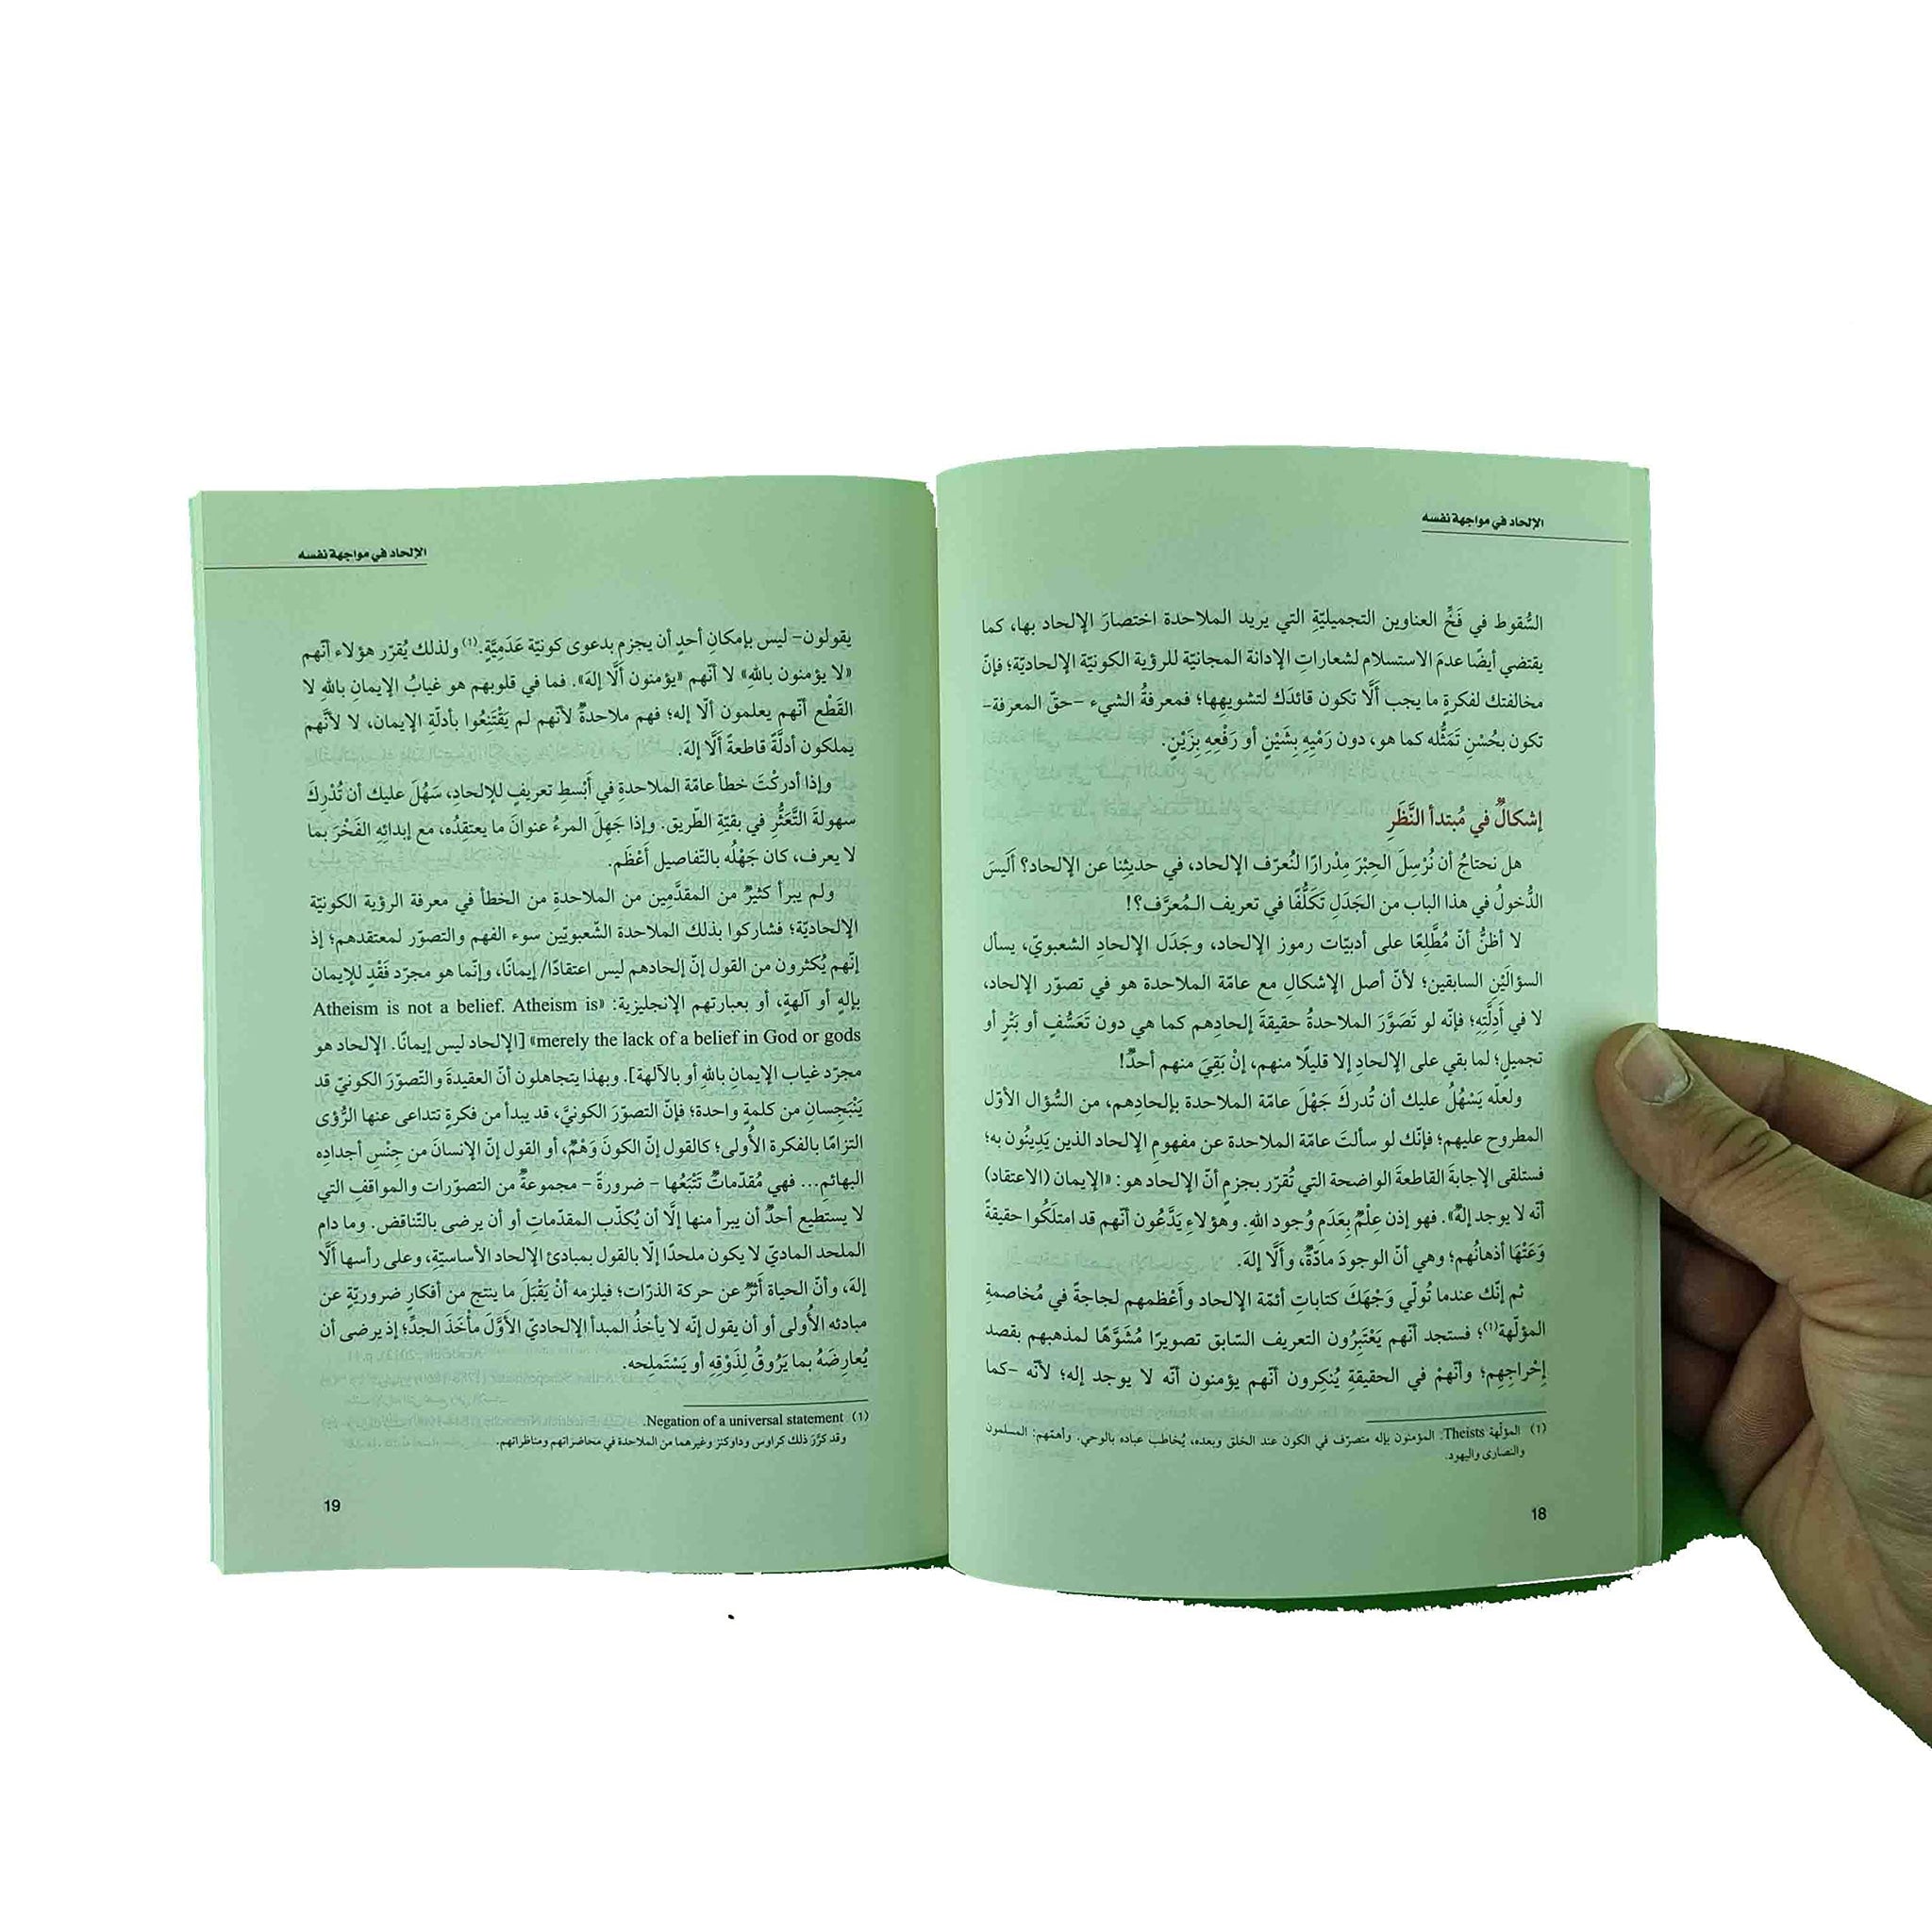 الإلحاد في مواجهة نفسه
السُّقوط في فَخِّ العناوين التجميليّةِ التي يريد الملاحدة اختصارَ الإلحاد بها، كما
يقتضي أيضًا عدمَ الاستسلام لشعاراتِ الإدانة المجانيّة للرؤية الكونيّة الإلحاديّة؛ فإنّ
مخالفتك لفكرةٍ ما يجب ألَّا تكون قائدَك لتشويهِها؛ فمعرفةُ الشيء -حقّ المعرفة-
تكون بحُسْنِ تَمَثُّله كما هو، دون رَمْيِهِ بِشَيْنٍ أو رَفْعِهِ بِزَيْنٍ.
إشكالٌ في مُبتدأ النَّظَرِ
هل نحتاجُ أن نُرْسِلَ الحِبْرَ مِدْرارًا لنُعرّف الإلحاد، في حديثِنا عن الإلحاد؟ أَلَيسَ
الدُّخولُ في هذا الباب من الجَدَلِ تَكَلُّفًا في تعريف الـمُعرَّف؟!
لا أظنُّ أنّ مُطَّلِعًا على أدبيّات رموز الإلحاد، وجَدَل الإلحادِ الشعبويّ، يسأل
السؤالَيْنِ السابقين؛ لأنّ أصل الإشكالِ مع عامّة الملاحدة هو في تصوّر الإلحاد،
لا في أَدِلَّتِهِ؛ فإنّه لو تَصَوَّرَ الملاحدةُ حقيقةَ إلحادِهم كما هي دون تَعَسُّفٍ أو بَتْرٍ أو
تجميلٍ؛ لما بقي على الإلحادِ إلا قليلًا منهم، إنْ بَقِيَ منهم أحدٌ!
ولعلّه يَسْهُلُ عليك أن تُدركَ جَهْلَ عامّة الملاحدة بإلحادِهم، من السُّؤال الأوّل
المطروح عليهم؛ فإنّك لو سألتَ عامّة الملاحدة عن مفهومِ الإلحاد الذين يَدِينُون به؛
فستلقى الإجابةَ القاطعةَ الواضحة التي تُقرّر بجزمٍ أنّ الإلحاد هو: «الإيمان (الاعتقاد)
أنّه لا يوجد إلهٌ». فهو إذن عِلْمٌ بِعَدَمِ وُجود اللهِ. وهؤلاءِ يَدَّعُون أنّهم قد امتلَكُوا حقيقةً
وَعَتْهَا أذهانُهم؛ وهي أنّ الوجودَ مادّةٌ، وألَّا إلهَ.
ثم إنّك عندما تُولّي وَجْهَكَ كتاباتِ أئمّة الإلحاد وأَعْظمهم لجاجةً في مُخاصمةِ
المؤلّهة(١)؛ فستجد أنّهم يَعْتَبِرُون التعريف السّابق تصويرًا مُشَوَّهًا لمذهبهم بقصد
إحْراجِهِم؛ وأنّهمْ في الحقيقةِ يُنكِرون أنّهم يؤمنون أنّه لا يوجد إله؛ لأنّه -كما
(١) المؤلّهة Theists: المؤمنون بإله متصرّف في الكون عند الخلق وبعده، يُخاطب عباده بالوحي. وأهمّهم: المسلمون
والنصارى واليهود.
18
الإلحاد في مواجهة نفسه
يقولون- ليس بإمكانِ أحدٍ أن يجزم بدعوى كونيّة عَدَمِيَّةٍ.(١) ولذلك يُقرّر هؤلاء أنّهم
«لا يؤمنون باللهِ» لا أنّهم «يؤمنون ألَّا إلهَ». فما في قلوبهم هو غيابُ الإيمانِ باللهِ لا
القَطْع أنّهم يعلمون ألّا إله؛ فهم ملاحدةٌ لأنّهم لم يَقْتَنِعُوا بأدلّةِ الإيمان، لا لأنَّهم
يملكون أدلَّةً قاطعةً ألَّا إلهَ.
وإذا أدركْتَ خطأ عامّة الملاحدةِ في أَبْسطِ تعريفٍ للإلحادِ، سَهُلَ عليك أن تُدْرِكَ
سهولةَ التَّعَثُّرِ في بقيّةِ الطّريق. وإذا جَهِلَ المرءُ عنوانَ ما يعتقِدُه، مع إبدائِهِ الفَخْرَ بما
لا يعرف، كان جَهْلُه بالتّفاصيل أَعْظَم.
ولم يبرأ كثيرٌ من المقدَّمِين من الملاحدةِ من الخطأ في معرفة الرؤية الكونيّة
الإلحاديّة؛ فشاركوا بذلك الملاحدة الشّعبويّين سوء الفهم والتصوّر لمعتقدهم؛ إذ
إنّهم يُكثرون من القول إنّ إلحادهم ليس اعتقادًا/ إيمانًا، وإنّما هو مجرّد فَقْدٍ للإيمان
بإلهٍ أو آلهةٍ، أو بعبارتهم الإنجليزية: «Atheism is not a belief. Atheism is
merely the lack of a belief in God or gods» [الإلحاد ليس إيمانًا. الإلحاد هو
مجرّد غياب الإيمانِ باللهِ أو بالآلهة]. وبهذا يتجاهلون أنّ العقيدةَ والتّصوّرَ الكونيّ قد
يَنْبَجِسانِ من كلمةٍ واحدة؛ فإنّ التصوّرَ الكونيَّ، قد يبدأ من فكرةٍ تتداعى عنها الرُّؤى
التزامًا بالفكرة الأُولى؛ كالقول إنّ الكونَ وَهْمٌ، أو القول إنّ الإنسانَ من جِنْسِ أجدادِه
البهائمِ... فهي مُقدّماتٌ تَتْبَعُها - ضرورةً - مجموعةٌ من التصوّرات والمواقفِ التي
لا يستطيع أحدٌ أن يبرأ منها إلّا أن يُكذّب المقدّماتِ أو أن يرضى بالتّناقض. وما دام
الملحد الماديّ لا يكون ملحدًا إلّا بالقول بمبادئ الإلحاد الأساسيّةِ، وعلى رأسها ألَّا
إلهَ، وأنّ الحياة أَثَرٌ عن حركة الذرّات؛ فيلزمه أنْ يَقْبَلَ ما ينتج من أفكارٍ ضروريّةٍ عن
مبادئه الأُولى أو أن يقول إنّه لا يأخذُ المبدأ الإلحاديّ الأوَّلَ مأْخَذَ الجدِّ؛ إذ يرضى أن
يُعارِضَهُ بما يَرُوقُ لِذَوْقِهِ أو يَسْتَملِحه.
(١) Negation of a universal statement.
وقد كرَّرَ ذلك كراوس وداوكنز وغيرهما من الملاحدة في محاضراتهم ومناظراتهم.
19